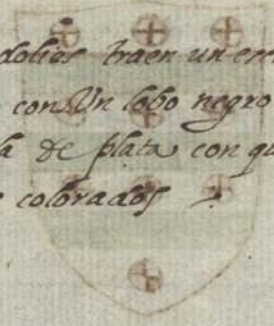 traen un
con Un lobo negro
de plata con
colorados